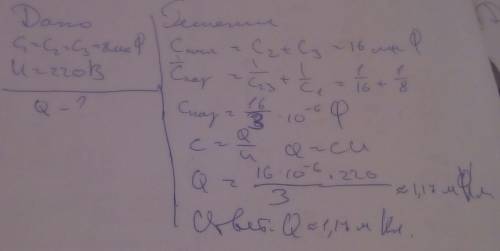 Дано
C₁=C₂=C₃=8мкФ
U=220В
Q-?
Решение
= C₂ + C₃ = 16 мк Ф
1/Cпар = 1/C₂₃ + 1/C₁ = 1/16 + 1/8
= 16/3 · 10⁻⁶ Ф
C = Q/U Q = CU
Q = 16·10⁻⁶·220/3 ≈ 1,17 м Кл
Ответ: Q ≈ 1,17 м Кл.